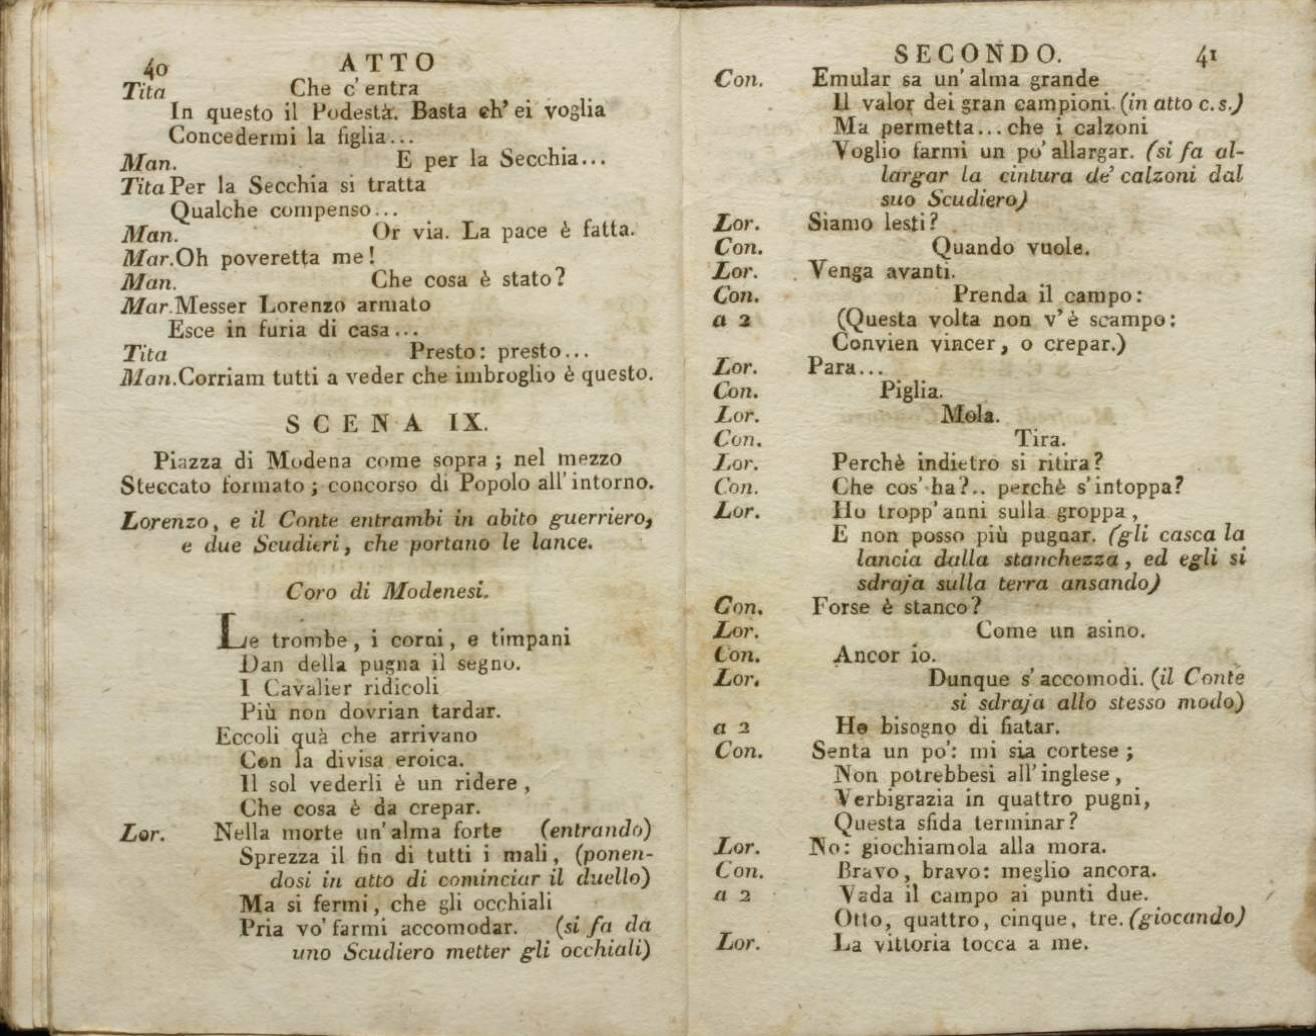 40 ATTO
Tita Che c' entra
In questo il Podestà. Basta ch' ei voglia
Concedermi la figlia...
Man. E per la Secchia...
Tita Per la Secchia si tratta
Qualche compenso...
Man. Or via. La pace è fatta.
Mar. Oh poveretta me!
Man. Che cosa è stato?
Mar. Messer Lorenzo armato
Esce in furia di casa...
Tita Presto: presto...
Man. Corriam tutti a veder che imbroglio è questo.
SCENA IX.
Piazza di Modena come sopra; nel mezzo
Steccato formato; concorso di Popolo all' intorno.
Lorenzo, e il Conte entrambi in abito guerriero,
e due Scudieri, che portano le lance.
Coro di Modenesi.
Le trombe, i corni, e timpani
Dan della pugna il segno.
I Cavalier ridicoli
Più non dovrian tardar.
Eccoli quà che arrivano
Con la divisa eroica.
Il sol vederli è un ridere,
Che cosa è da crepar.
Lor. Nella morte un' alma forte (entrando)
Sprezza il fin di tutti i mali, (ponen-
dosi in atto di cominciar il duello)
Ma si fermi, che gli occhiali
Pria vo' farmi accomodar. (si fa da
uno Scudiero metter gli occhiali)
SECONDO. 41
Con. Emular sa un' alma grande
Il valor dei gran campioni. (in atto c. s.)
Ma permetta... che i calzoni
Voglio farmi un po' allargar. (si fa al-
largar la cintura de' calzoni dal
suo Scudiero)
Lor. Siamo lesti?
Con. Quando vuole.
Lor. Venga avanti.
Con. Prenda il campo:
a 2 (Questa volta non v' è scampo:
Convien vincer, o crepar.)
Lor. Para...
Con. Piglia.
Lor. Mola.
Con. Tira.
Lor. Perchè indietro si ritira?
Con. Che cos' ha?.. perchè s' intoppa?
Lor. Ho tropp' anni sulla groppa,
E non posso più pugnar. (gli casca la
lancia dalla stanchezza, ed egli si
sdraja sulla terra ansando)
Con. Forse è stanco?
Lor. Come un asino.
Con. Ancor io.
Lor. Dunque s' accomodi. (il Conte
si sdraja allo stesso modo)
a 2 Ho bisogno di fiatar.
Con. Senta un po': mi sia cortese;
Non potrebbesi all' inglese,
Verbigrazia in quattro pugni,
Questa sfida terminar?
Lor. No: giochiamola alla mora.
Con. Bravo, bravo: meglio ancora.
a 2 Vada il campo ai punti due.
Otto, quattro, cinque, tre. (giocando)
Lor. La vittoria tocca a me.